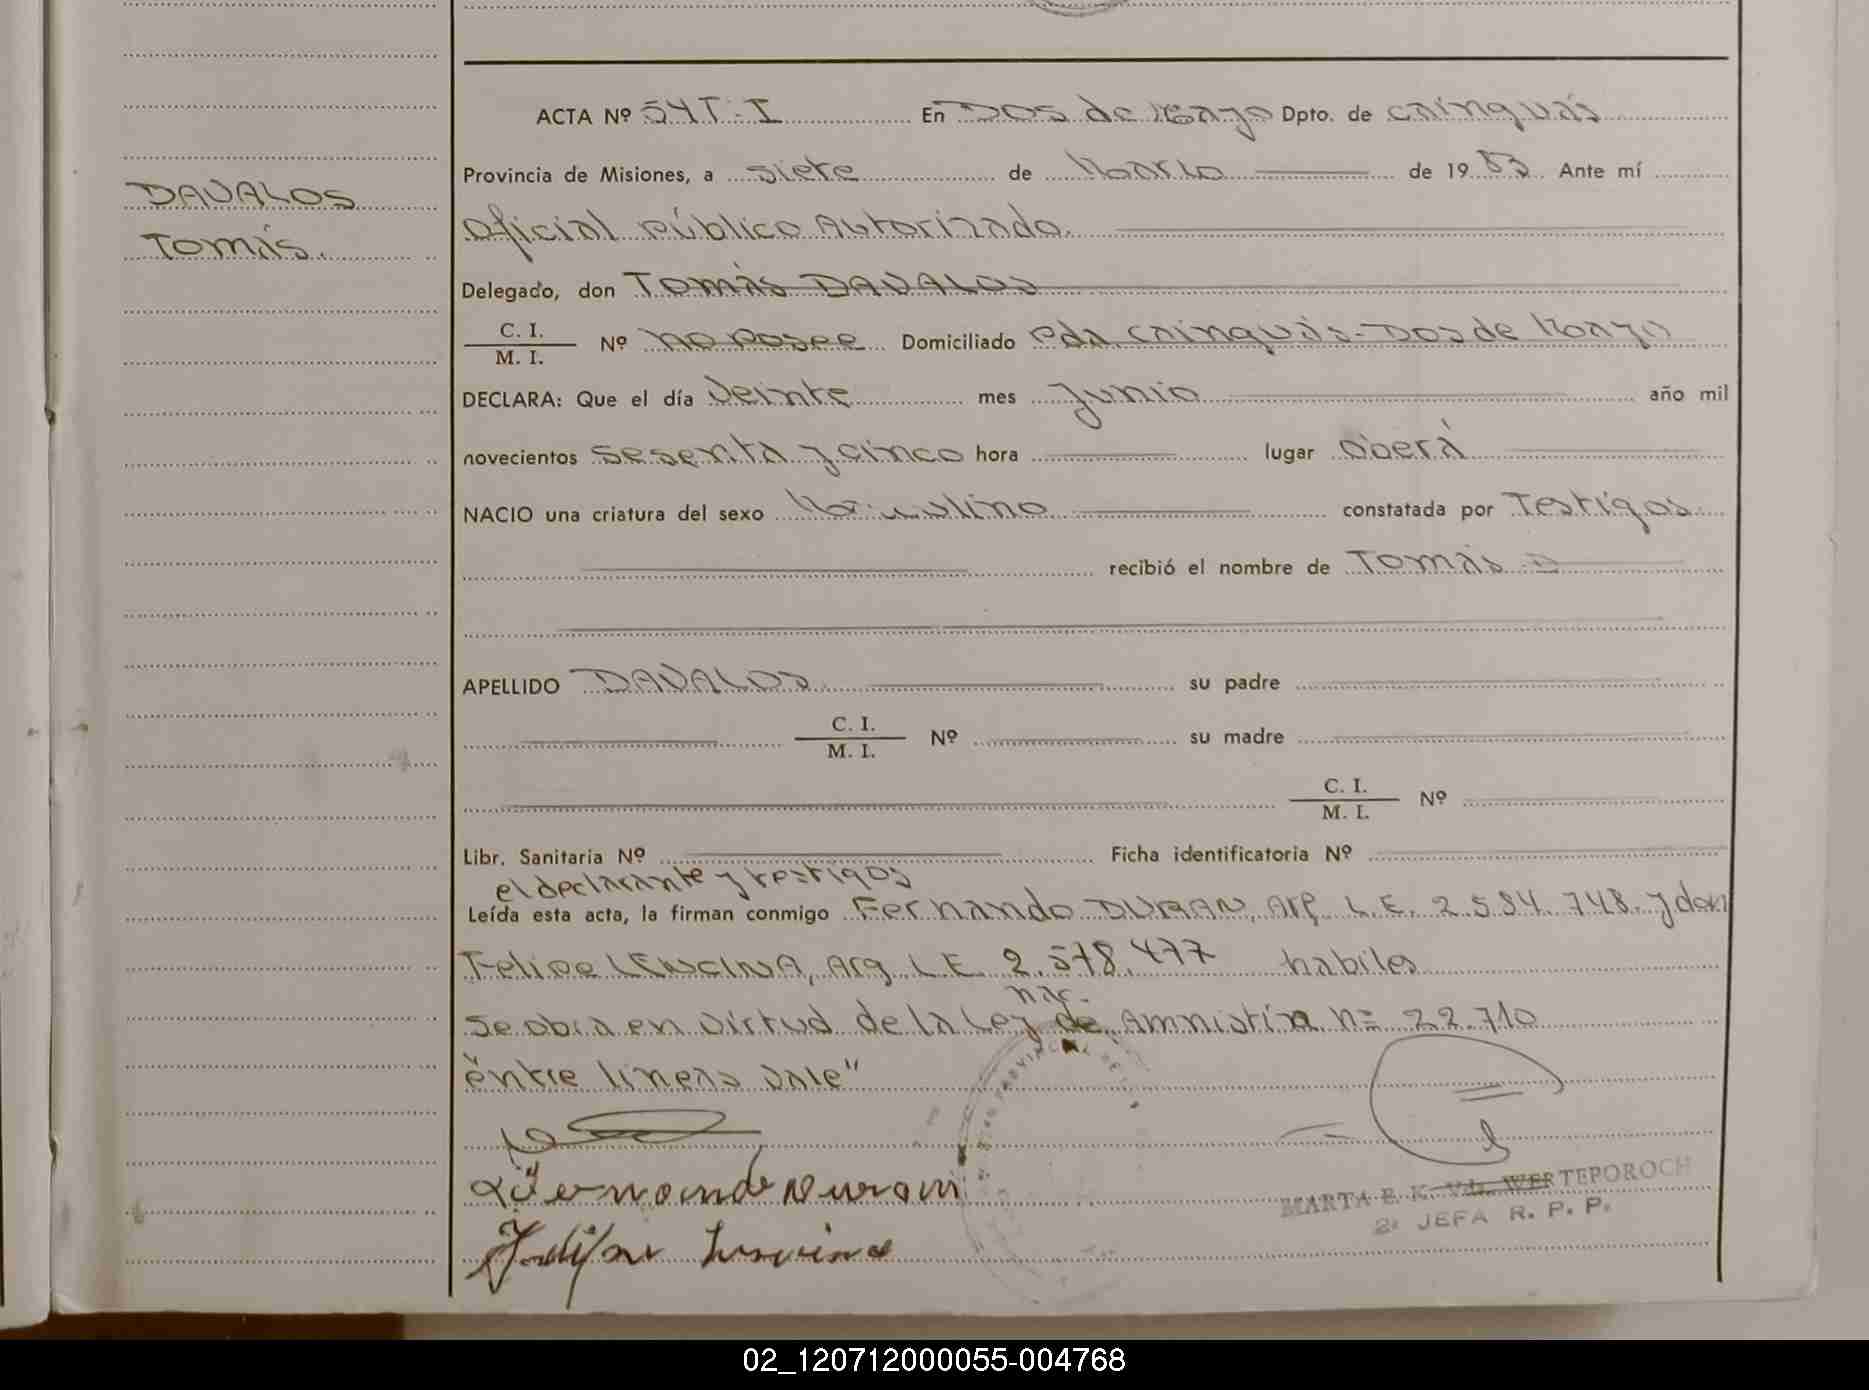 ACTA Nº 54T. I En Dos de Mayo Dpto. de Cainguás
Provincia de Misiones, a siete de Marzo de 1983. Ante mí
DAVALOS
Oficial Público Autorizado.
Tomás.
Delegado, don Tomás DAVALOS
C. I.
M. I. Nº no posee Domiciliado Pda Cainguás-Dos de Mayo
DECLARA: Que el día veinte mes junio año mil
novecientos sesenta y cinco hora lugar Oberá
NACIO una criatura del sexo Masculino constatada por Testigos
recibió el nombre de Tomás
APELLIDO DAVALOS su padre
C. I.
M. I. Nº su madre
C. I.
M. I. Nº
Libr. Sanitaria Nº Ficha identificatoria Nº
el declarante y testigos
Leída esta acta, la firman conmigo Fernando DURAN, Arg. L.E. 2.584.748. y don
Felipe LENCINA, Arg. L.E. 2.578.477 habiles
nac.
se obra en virtud de la Ley de Amnistía nº 22.710
"entre lineas vale"
Fernando Duran
MARTA E. K. Vda. WERTEPOROCH
2ª JEFA R. P. P.
Felipe Lencina
02_120712000055-004768